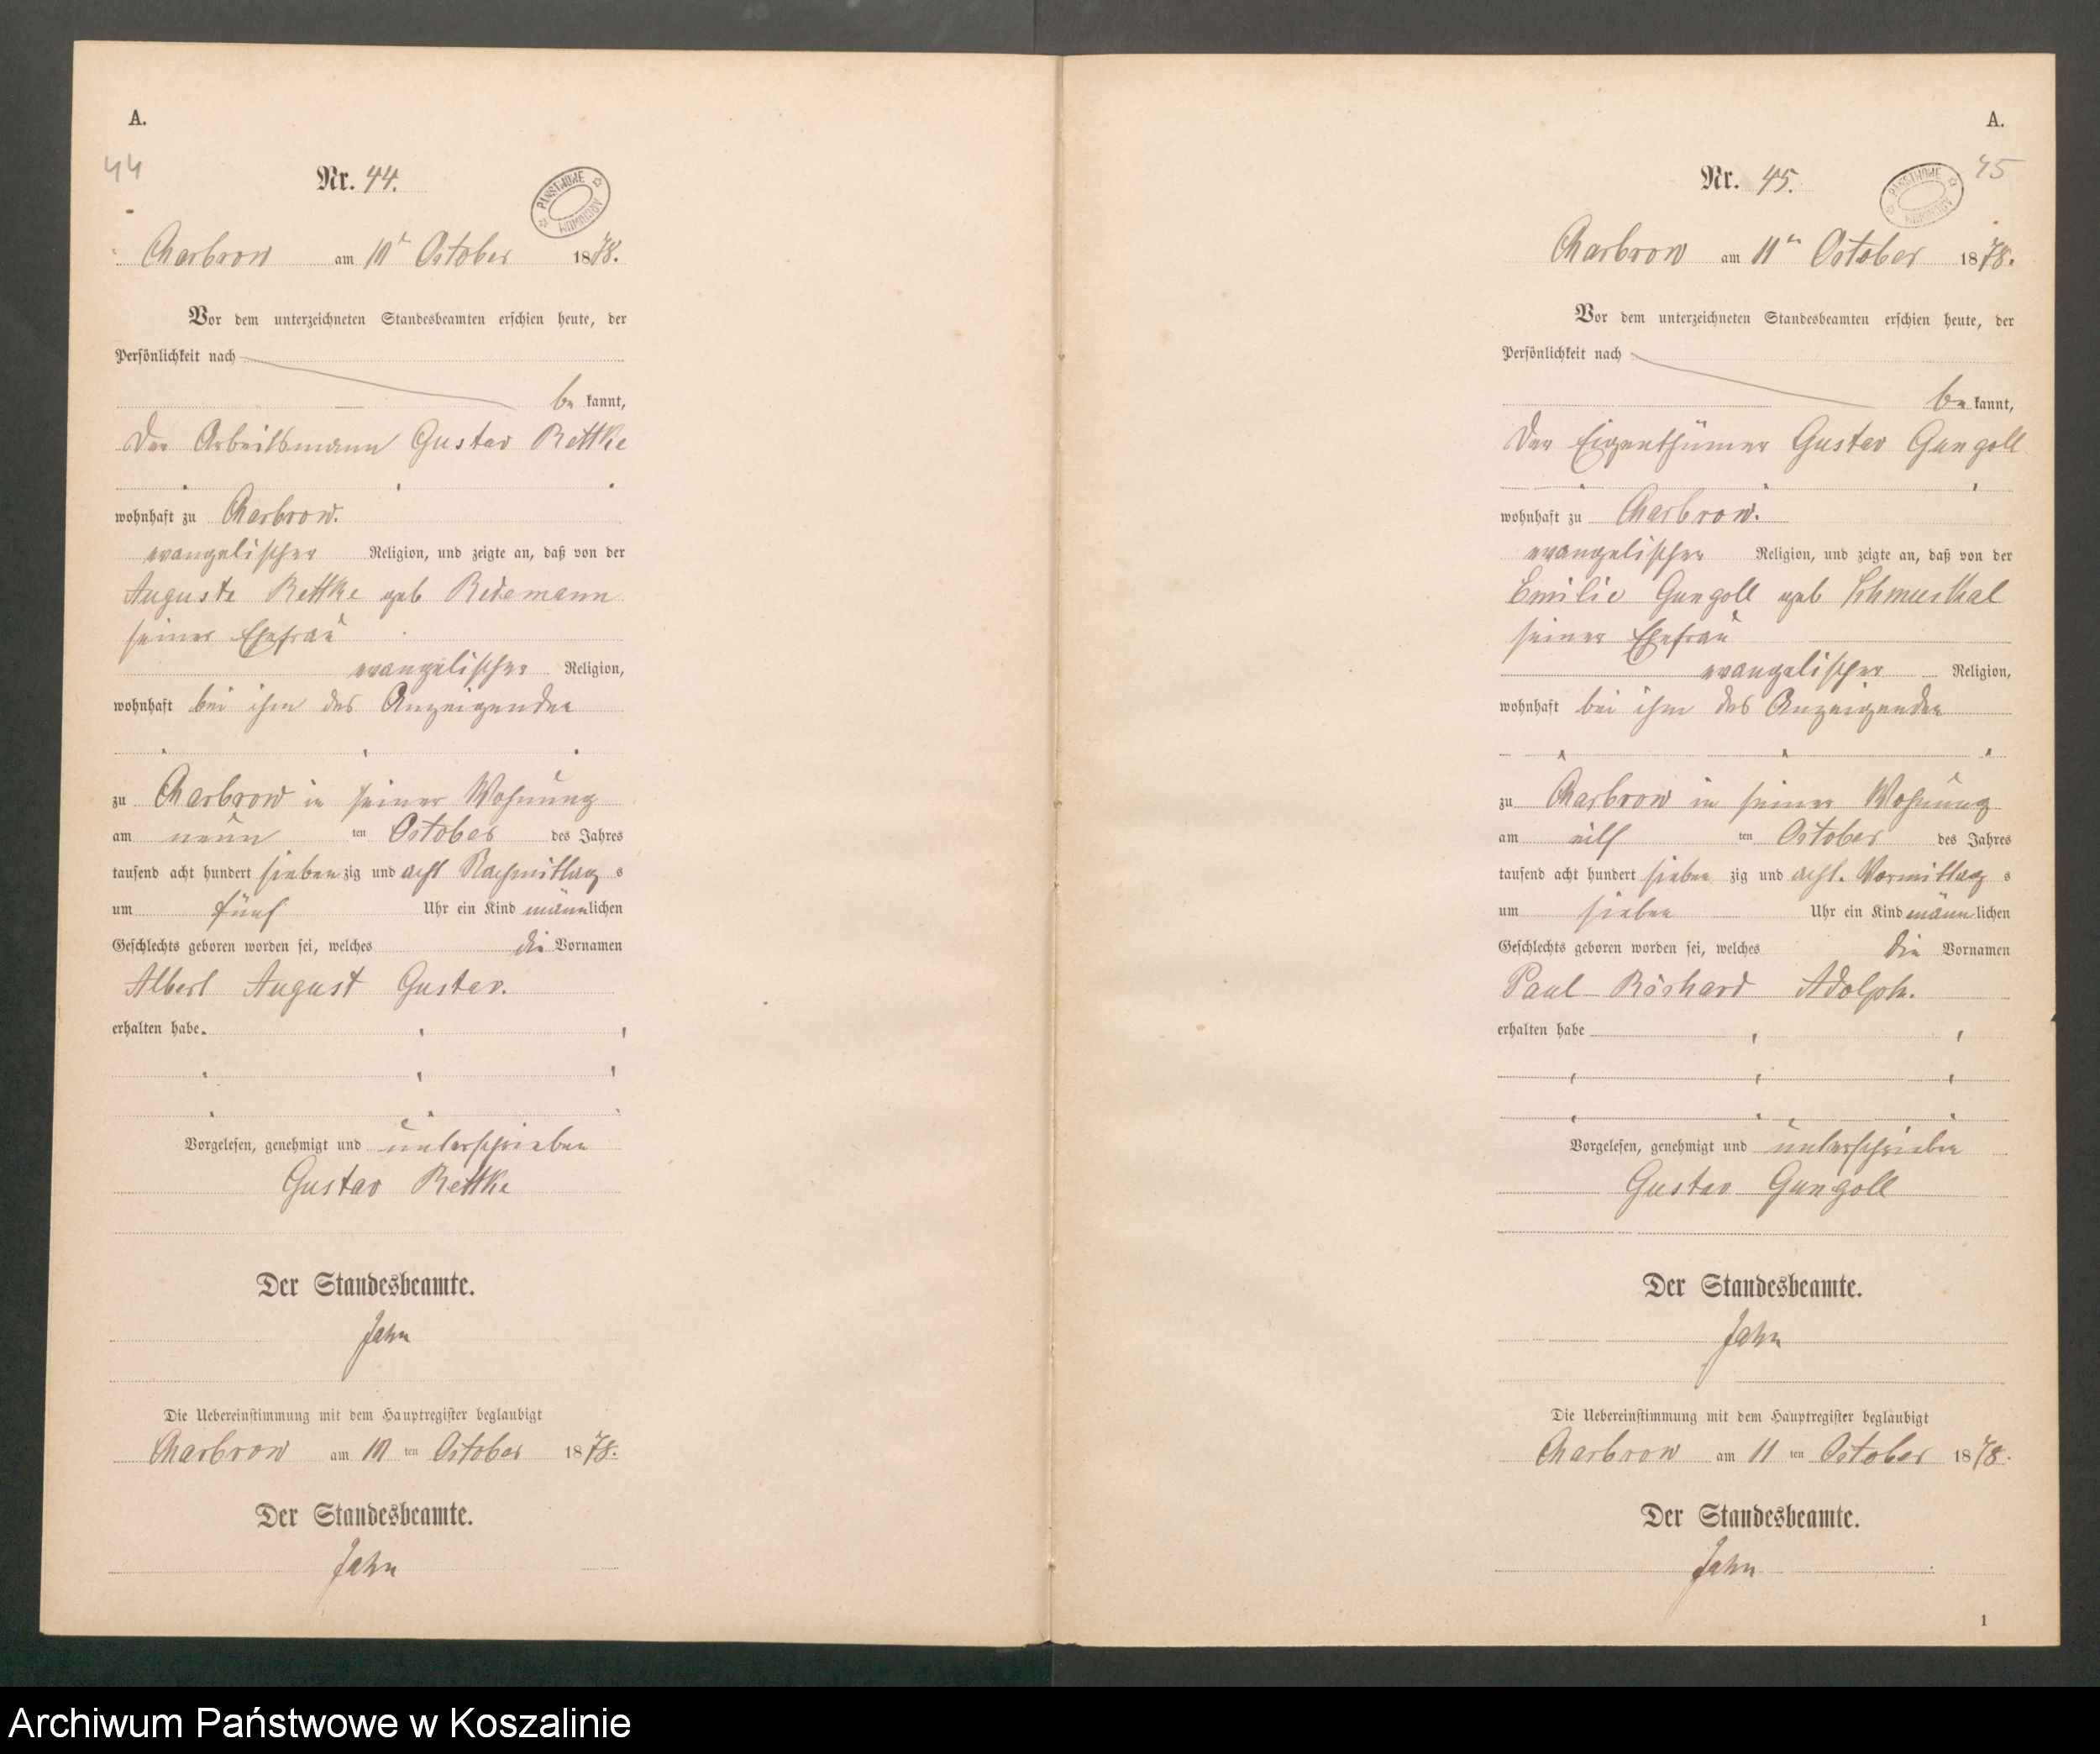 A.
44
Nr. 44.
PAŃSTWOWE ARCHIWUM
Charbrow am 10t October 1878.
Vor dem unterzeichneten Standesbeamten erschien heute, der
Persönlichkeit nach
be kannt,
der Arbeitsmann Gustav Rettke
wohnhaft zu Charbrow.
evangelischer Religion, und zeigte an, daß von der
Auguste Rettke geb Redemann
seiner Ehefrau
evangelischer Religion,
wohnhaft bei ihm des Anzeigenden
zu Charbrow in seiner Wohnung
am neun ten October des Jahres
tausend acht hundert sieben zig und acht Nachmittag s
um fünf Uhr ein Kind männlichen
Geschlechts geboren worden sei, welches die Vornamen
Albert August Gustav.
erhalten habe.
Vorgelesen, genehmigt und unterschrieben
Gustav Rettke
Der Standesbeamte.
Jahn
Die Uebereinstimmung mit dem Hauptregister beglaubigt
Charbrow am 10 ten October 1878.
Der Standesbeamte.
Jahn
A.
45
Nr. 45.
PAŃSTWOWE ARCHIWUM
Charbrow am 11ten October 1878.
Vor dem unterzeichneten Standesbeamten erschien heute, der
Persönlichkeit nach
be kannt,
der Eigenthümer Gustav Gungoll
wohnhaft zu Charbrow.
evangelischer Religion, und zeigte an, daß von der
Emilie Gungoll geb
seiner Ehefrau
evangelischer Religion,
wohnhaft bei ihm des Anzeigenden
zu Charbrow in seiner Wohnung
am eilf ten October des Jahres
tausend acht hundert sieben zig und acht. Vormittag s
um sieben Uhr ein Kind männlichen
Geschlechts geboren worden sei, welches die Vornamen
Paul Richard Adolph.
erhalten habe
Vorgelesen, genehmigt und unterschrieben
Gustav Gungoll
Der Standesbeamte.
Jahn
Die Uebereinstimmung mit dem Hauptregister beglaubigt
Charbrow am 11 ten October 1878.
Der Standesbeamte.
Jahn
1
Archiwum Państwowe w Koszalinie